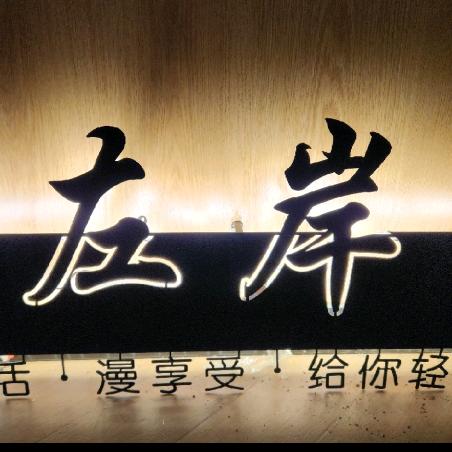 左岸
活·漫享受·给你轻